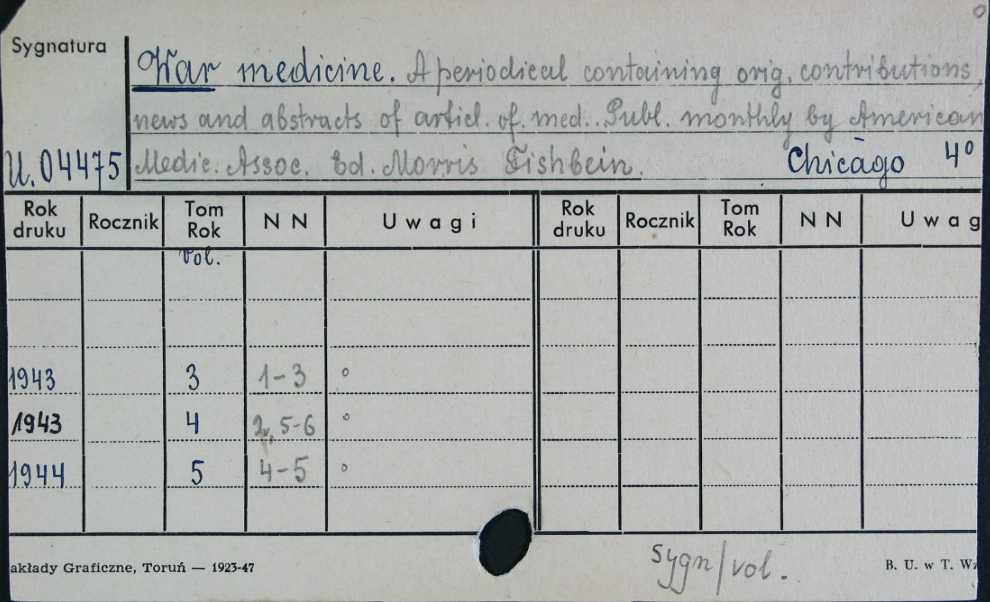 Sygnatura
War medicine. A periodical containing orig. contributions,
news and abstracts of articl. of. med.. Publ. monthly by American
U. 04475 Medic. Assoc. Ed. Morris Fishbein. Chicago 4°
Rok druku Rocznik Tom Rok N N Uwagi Rok druku Rocznik Tom Rok N N Uwag
Vol.
1943 3 1-3 °
1943 4 2, 5-6 °
1944 5 4-5 °
sygn/vol.
akłady Graficzne, Toruń — 1923-47 B. U. w T. Wz